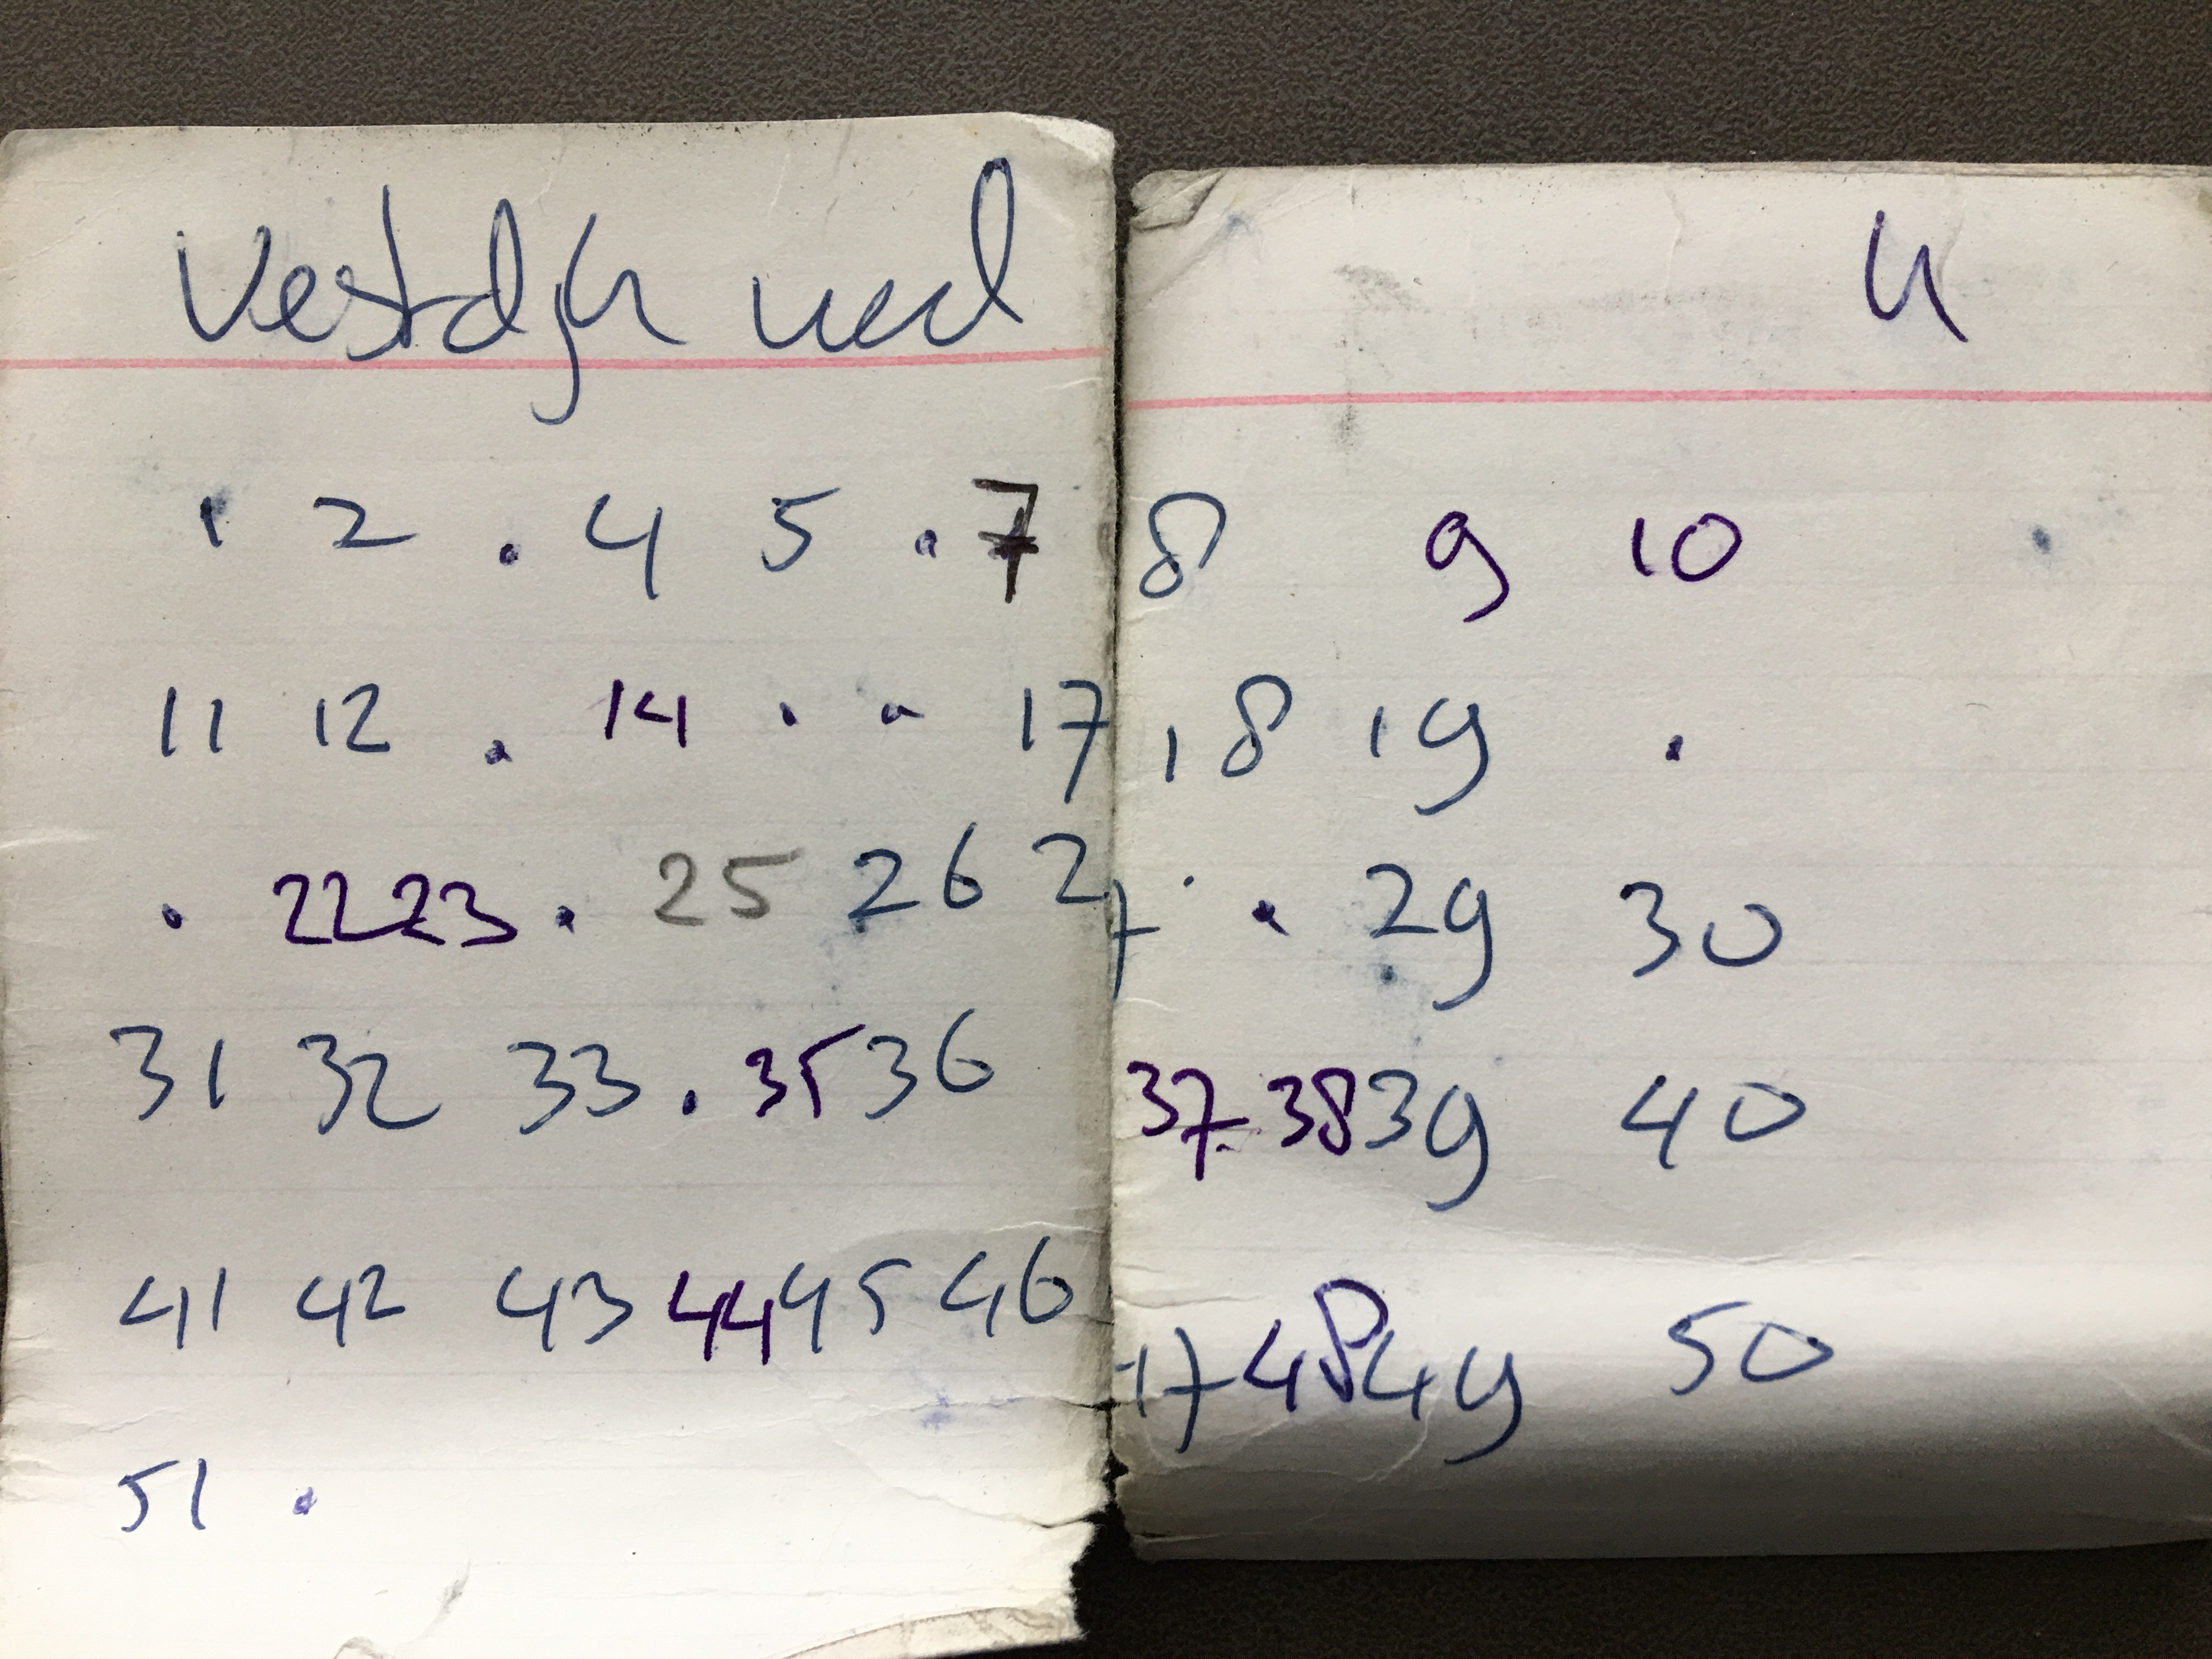 1 2 . 4 5 . 7 8 9 10 .
11 12 . 14 . . 17 18 19 .
. 22 23 . 25 26 27 . 29 30
31 32 33 . 35 36 37 38 39 40
41 42 43 44 45 46 47 48 49 50
51 .